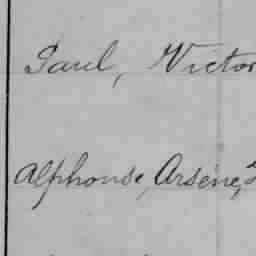 Paul, Victor
Alphonse, Arsène,